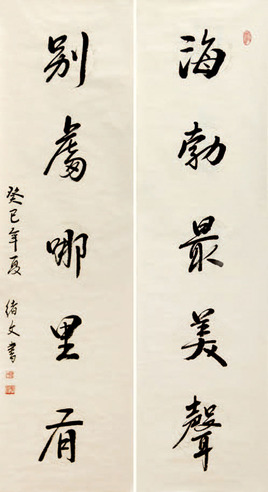 海勃最美聲
别處哪里有
癸巳年夏 绪文書